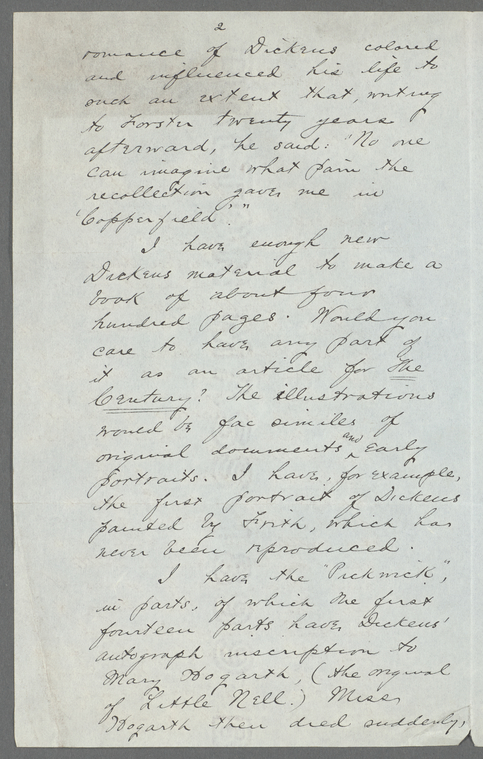 2
romance of Dickens colored
and influenced his life to
such an extent that, writing
to Forster twenty years
afterward, he said: "No one
can imagine what pain the
recollection gave me in
'Copperfield'."
I have enough new
Dickens material to make a
book of about four
hundred pages. Would you
care to have any part of
it as an article for The
Century? The illustrations
would be fac similes of
original documents and early
portraits. I have, for example,
the first portrait of Dickens
painted by Frith, which has
never been reproduced.
I have the "Pickwick",
in parts, of which the first
fourteen parts have Dickens'
autograph inscription to
Mary Hogarth, (the original
of Little Nell.) Miss
Hogarth then died suddenly,